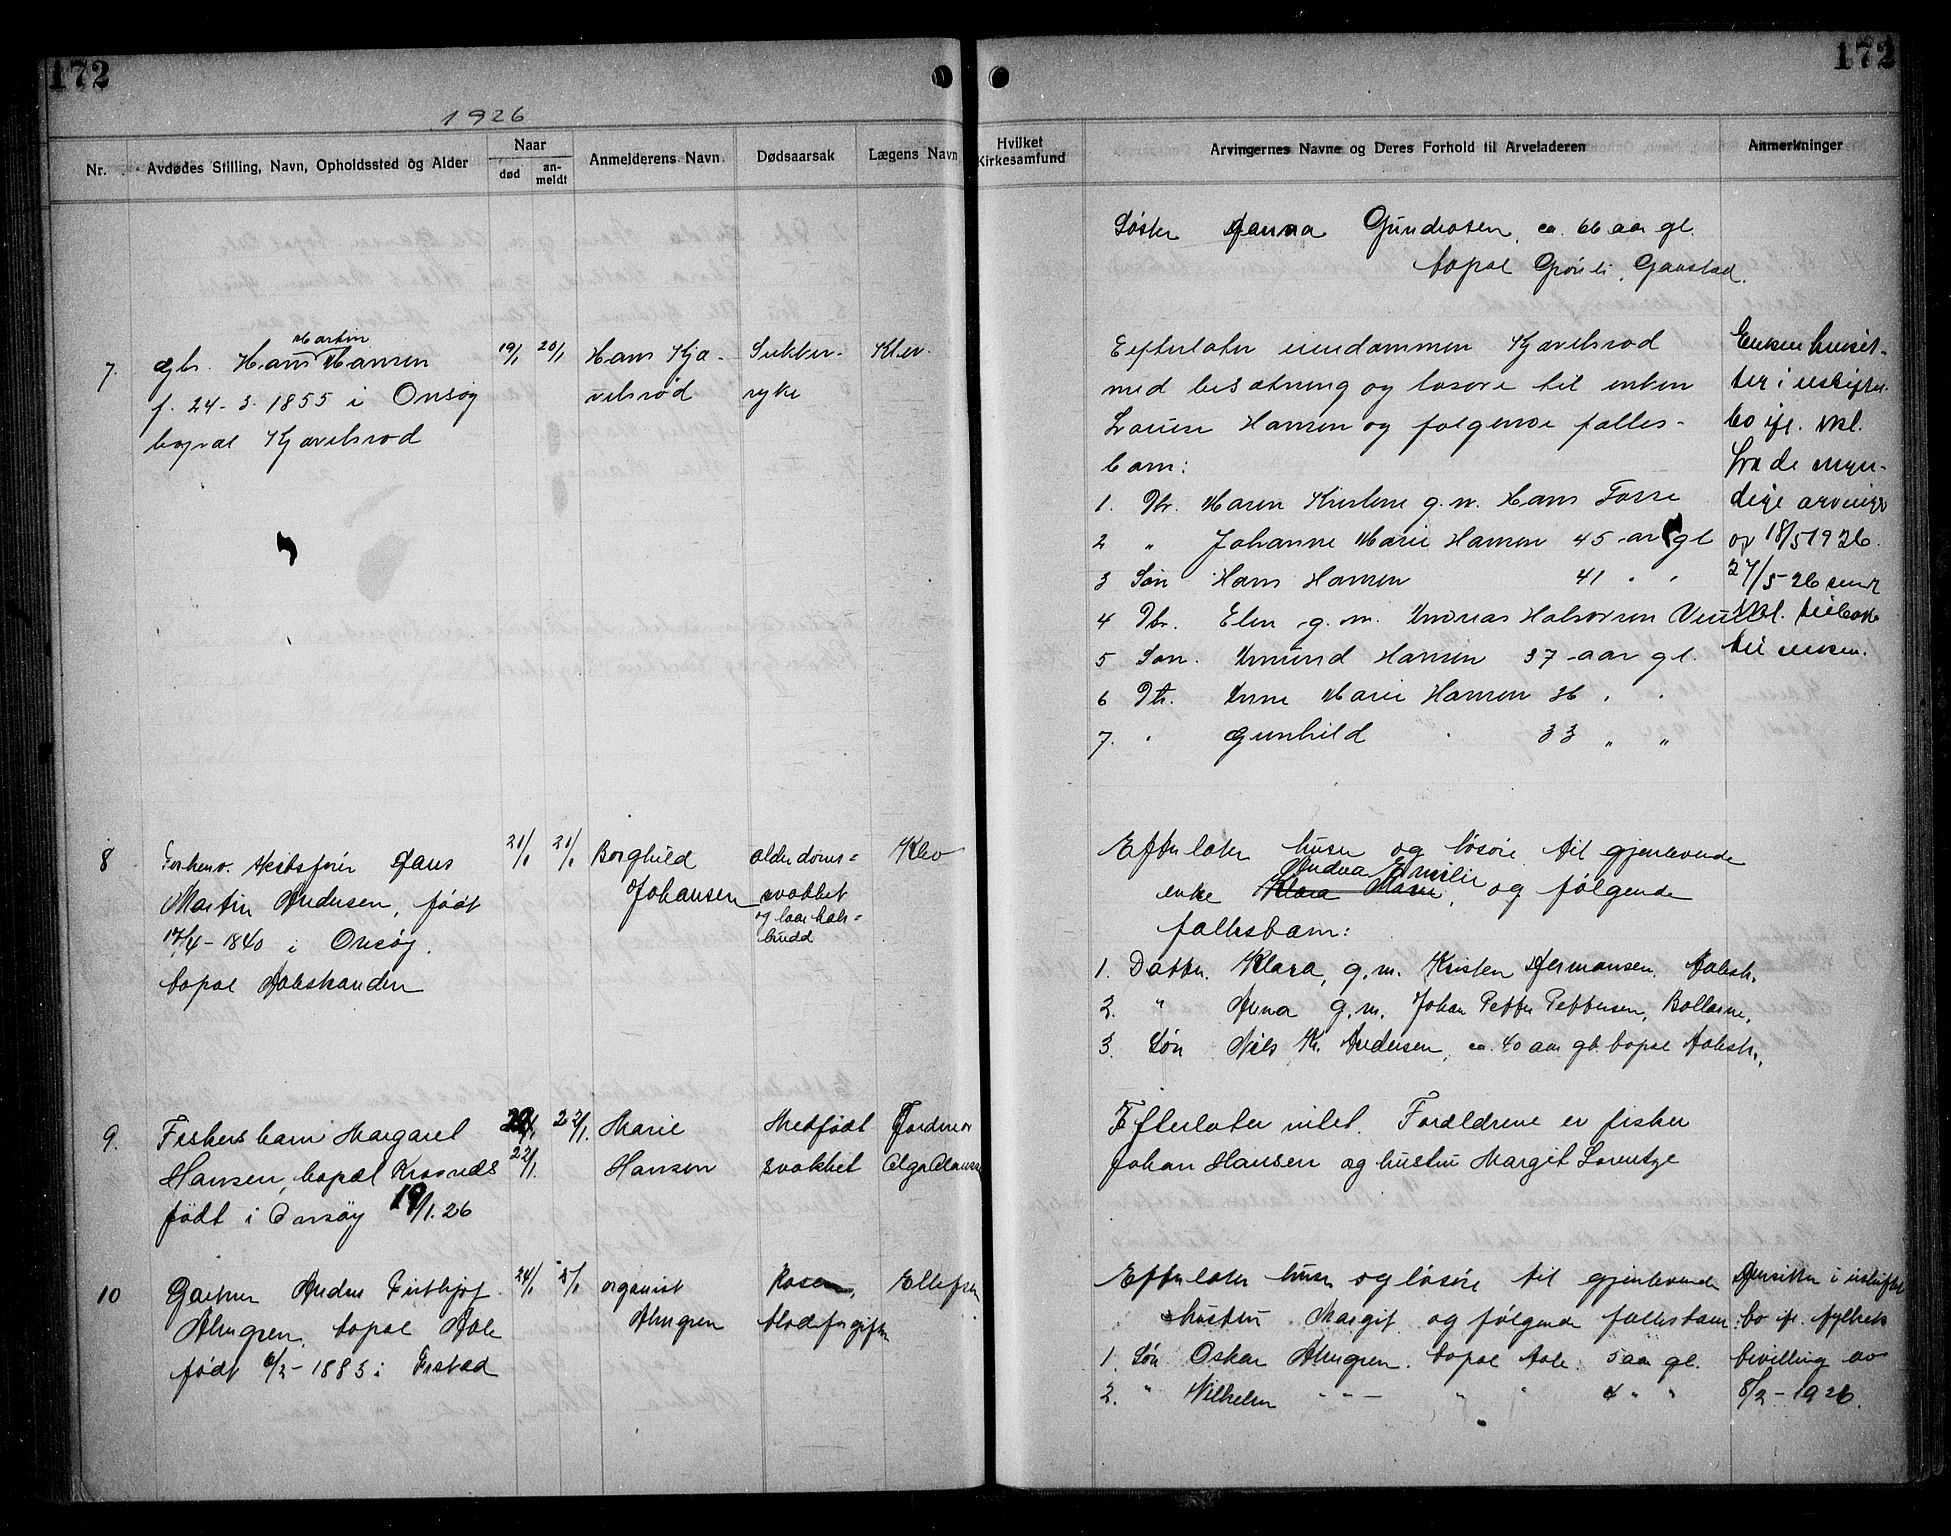 172
172
1926
Nr.
Avdødes Stilling, Navn, Opholdssted og Alder
Naar
død
an-
meldt
Anmelderens Navn
Dødsaarsak
Lægens Navn
Hvilket
Kirkesamfund
Arvingernes Navne og Deres Forhold til Arveladeren
Anmerkninger
Søster Hanna Gundersen, ca. 66 aar gl.
bopæl Grønli, Gaustad.
7.
Martin
Gbr. Hans Hansen
f. 24-3. 1855 i Onsøy
bopæl Kjærelsrød
19/1
20/1
Hans Kjæ-
relsrød
Sukker-
syke
Kler.
Efterlater eiendommen Kjærelsrød
med besætning og løsøre til enken
Lovise Hansen og følgende fælles-
barn:
1. Dtr. Maren Kristine g.m. Hans Fosse
2 " Johanne Marie Hansen 45 aar gl
3 Søn Hans Hansen 41 " "
4 Dtr. Elen g.m. Andreas Halvorsen
5 Søn. Amund Hansen 37 aar gl.
6 Dtr. Anne Marie Hansen 36 " "
7. " Gunhild " 33 " "
Enken hensit-
ter i uskiftet
bo ifl. skl.
fra de myn-
dige arvinger
av 18/5 1926.
27/5-26 sendt
skl. tilbake
til enken.
8
Forhenv. Arbsfører Hans
Martin Andersen, født
17/4-1840 i Onsøy.
bopæl Aalestranden
21/1
21/1
Borghild
Johansen
alderdoms-
svakhet
og laarhals-
brudd
Klev
Efterlater huser og løsøre til gjenlevende
Andrea Emilie
enke Klara Marie, og følgende
fællesbarn:
1. Datter. Klara, g.m. Kristen Hermansen. Aalestr.
2. " Anna g.m. Johan Petter Pettersen, Bollærne.
3. Søn Niels Kr. Andersen, ca. 40 aar gl. bopæl Aalestr.
9.
Fiskers barn Margaret
Hansen, bopæl Kraaveds
født i Onsøy 19/1.26
22/1.
22/1.
Marie
Hansen
Medfødt
svakhet
Jordmor
Olga Olaussen
Efterlater intet. Forældrene er fisker
Johan Hansen og hustru Margit Lorentze
10
Gartner Anders Fritthjof
Almgren, bopæl Aale
født 6/2-1883 i Fistad
24/1
25/1
organist
Almgren
Rosen,
blodforgiftn
Ellefsen
Efterlater huser og løsøre til gjenlevende
hustru Margit og følgende fællesbarn:
1. Søn Oskar Almgren. bopæl Aale. 5 aar gl.
2. " Wilhelm " " " 4 " "
Hensitter i uskiftet
bo ifl. fylkets
bevilling av
8/2-1926.